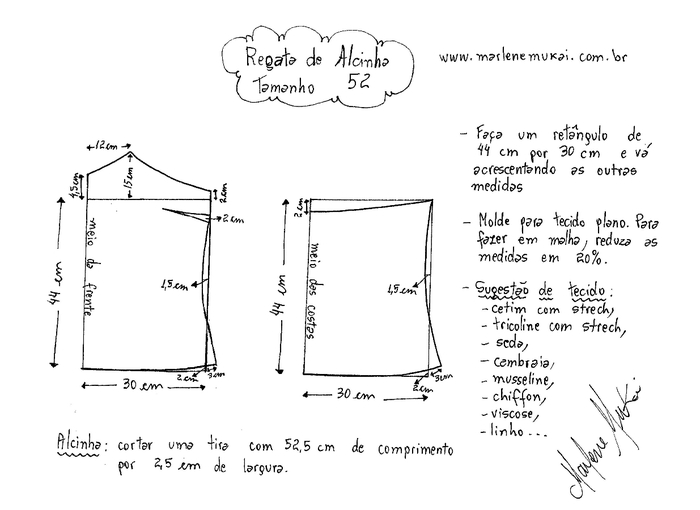 Regata de Alcinha
Tamanho 52
www.marlenemukai.com.br
12 cm
4,5 cm
15 cm
2 cm
2 cm
44 cm
meio da frente
1,5 cm
2 cm
3 cm
30 cm
2 cm
44 cm
meio das costas
1,5 cm
2 cm
3 cm
30 cm
- Faça um retângulo de
44 cm por 30 cm e vá
acrescentando as outras
medidas
- Molde para tecido plano. Para
fazer em malha, reduza as
medidas em 20%.
- Sugestão de tecido:
- cetim com strech,
- tricoline com strech,
- seda,
- cambraia,
- musseline,
- chiffon,
- viscose,
- linho...
Alcinha: cortar uma tira com 52,5 cm de comprimento
por 2,5 cm de largura.
Marlene Mukai